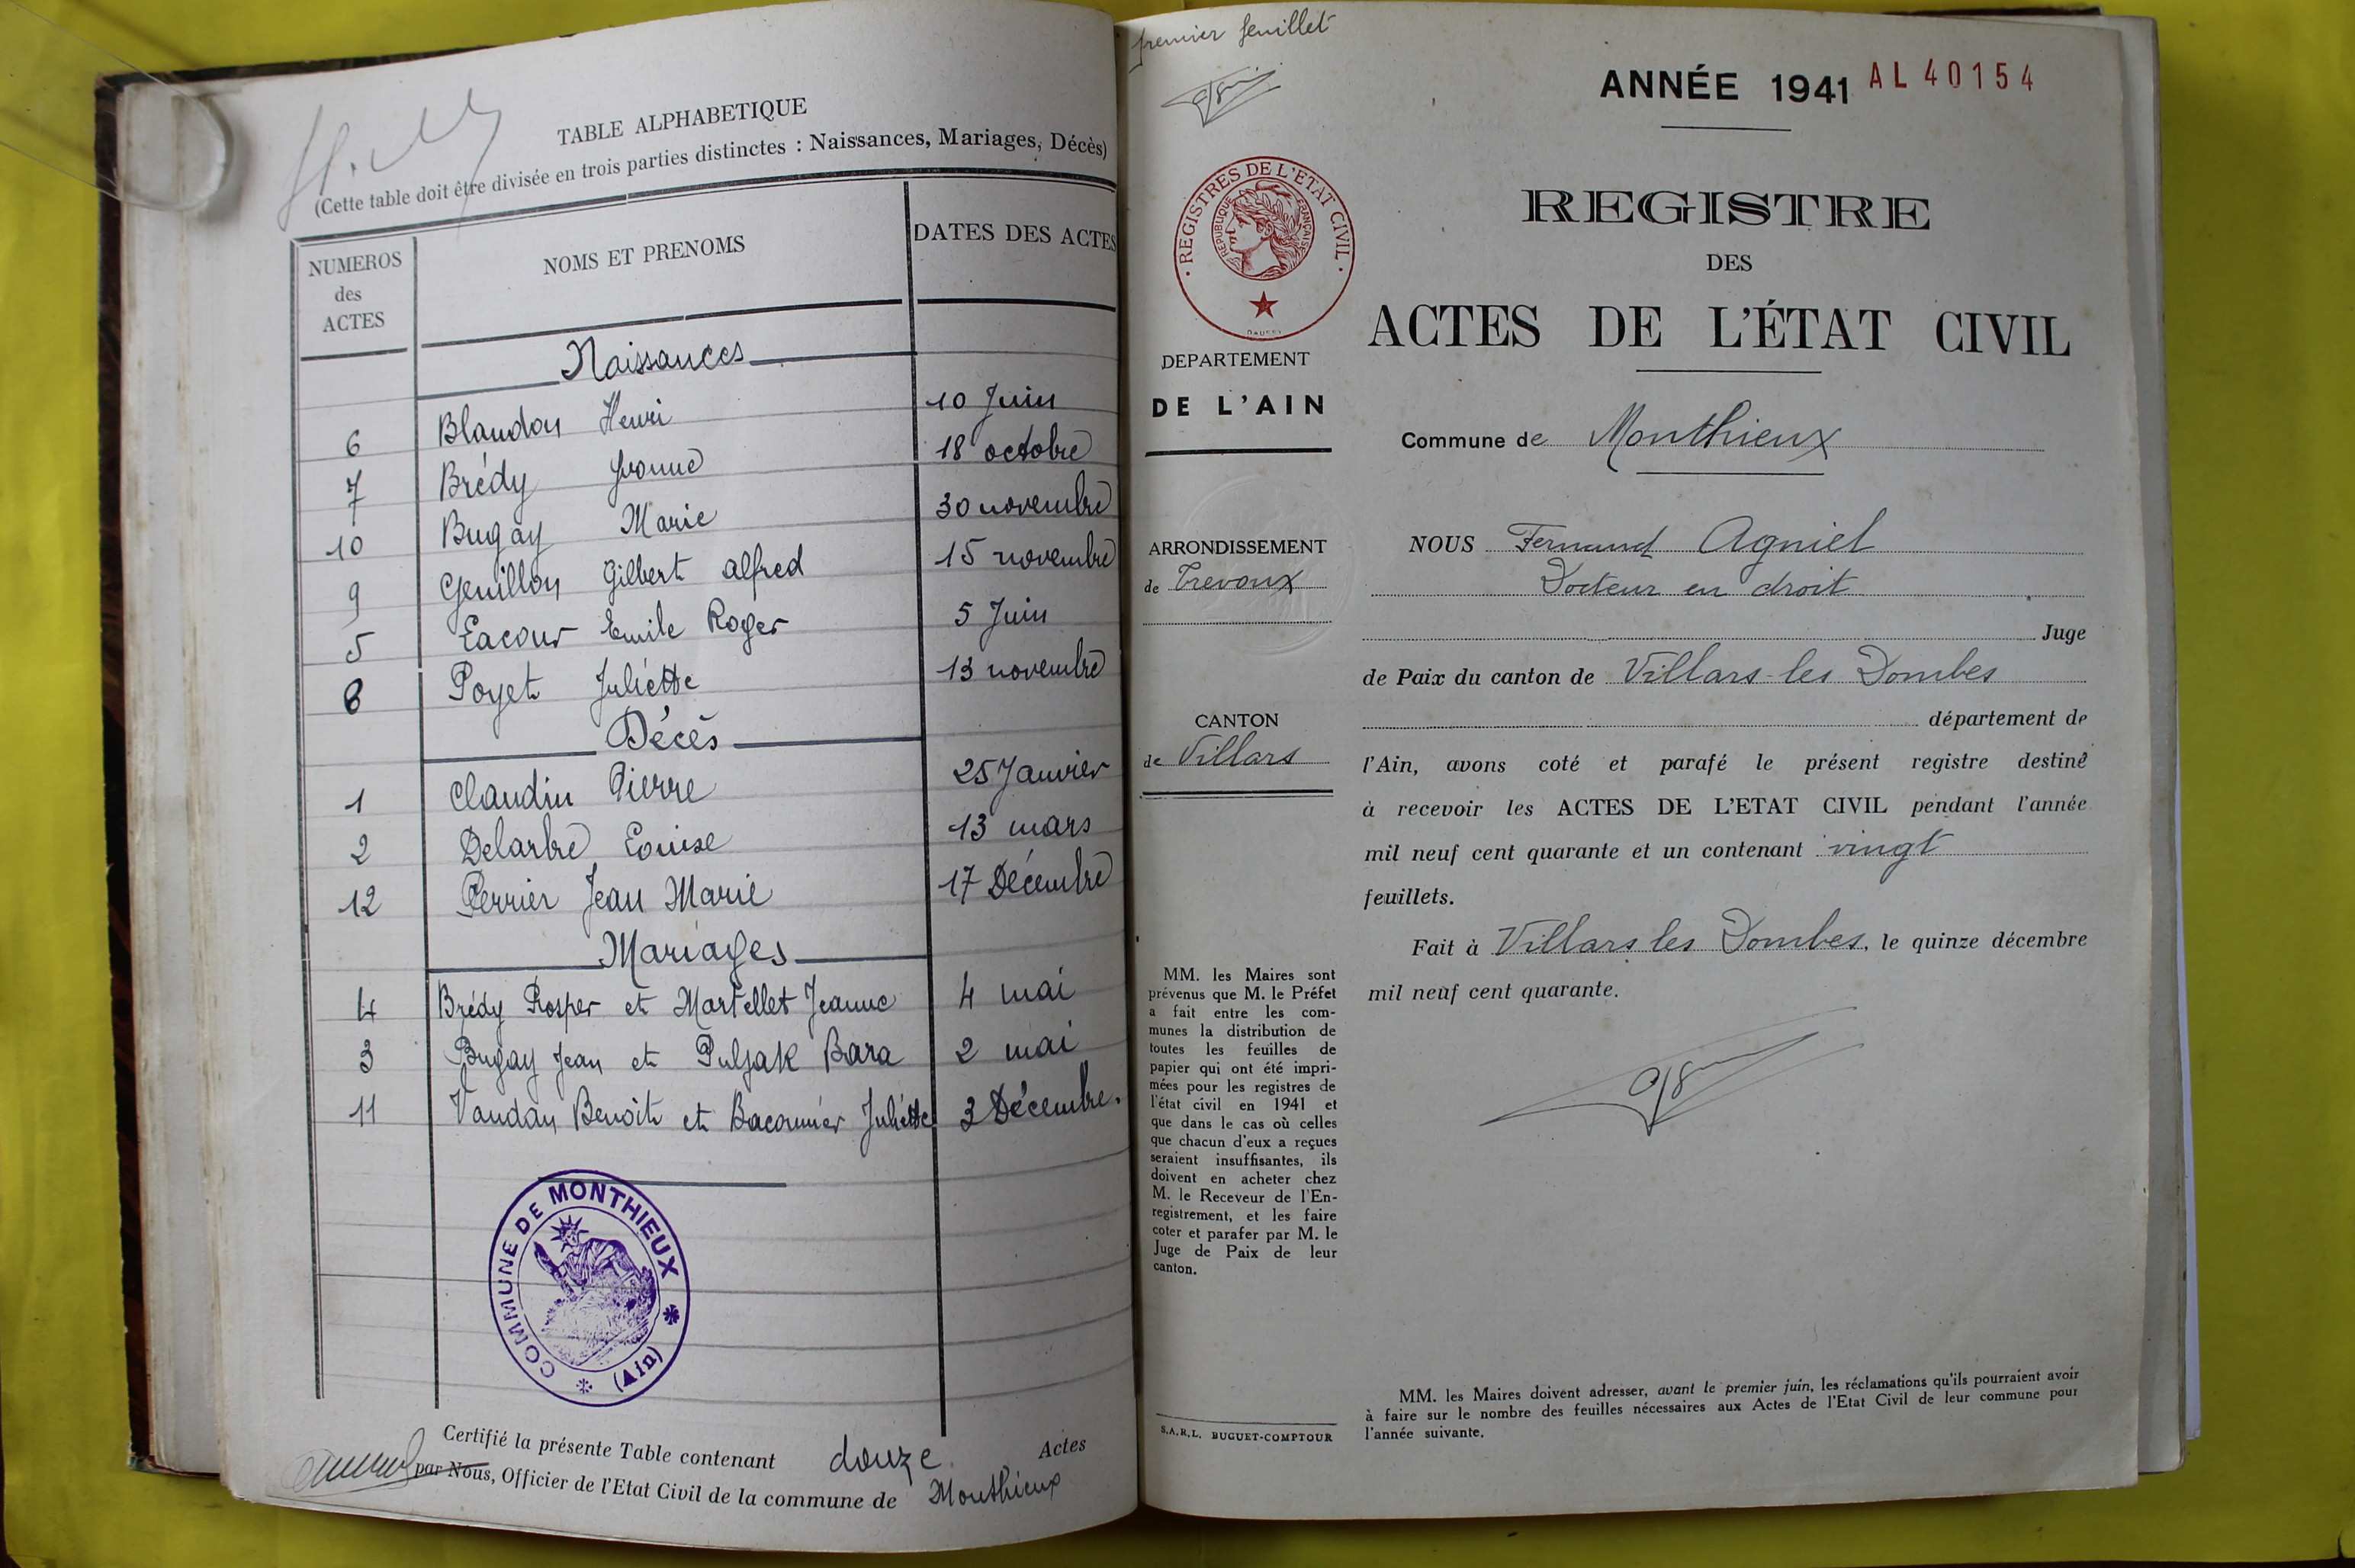 TABLE ALPHABETIQUE
(Cette table doit être divisée en trois parties distinctes : Naissances, Mariages, Décès)
NUMEROS des ACTES NOMS ET PRENOMS DATES DES ACTES
Naissances
6 Blandon Henri 10 Juin
7 Brédy Yvonne 18 octobre
10 Bugay Marie 30 novembre
9 Genillon Gilbert alfred 15 novembre
5 Lacour Emile Roger 5 Juin
8 Poyet Juliette 13 novembre
Décès
1 Claudin Pierre 25 Janvier
2 Delarbre Louise 13 mars
12 Perrier Jean Marie 17 Décembre
Mariages
4 Brédy Prosper et Martellet Jeanne 4 mai
3 Bugay Jean et Puljak Bara 2 mai
11 Vaudan Benoit et Baconnier Juliette 3 Décembre.
COMMUNE DE MONTHIEUX
(Ain)
Certifié la présente Table contenant douze Actes
par Nous, Officier de l'Etat Civil de la commune de Monthieux
premier feuillet
ANNÉE 1941 AL 40154
REGISTRES DE L'ETAT CIVIL
REPUBLIQUE FRANÇAISE
REGISTRE
DES
ACTES DE L'ÉTAT CIVIL
DEPARTEMENT
DE L'AIN
ARRONDISSEMENT
de Trevoux
CANTON
de Villars
Commune de Monthieux
NOUS Fernand Agniel
Docteur en droit
Juge
de Paix du canton de Villars-les Dombes
département de
l'Ain, avons coté et parafé le présent registre destiné
à recevoir les ACTES DE L'ETAT CIVIL pendant l'année
mil neuf cent quarante et un contenant vingt
feuillets.
Fait à Villars les Dombes, le quinze décembre
mil neuf cent quarante.
MM. les Maires sont
prévenus que M. le Préfet
a fait entre les com-
munes la distribution de
toutes les feuilles de
papier qui ont été impri-
mées pour les registres de
l'état civil en 1941 et
que dans le cas où celles
que chacun d'eux a reçues
seraient insuffisantes, ils
doivent en acheter chez
M. le Receveur de l'En-
registrement, et les faire
coter et parafer par M. le
Juge de Paix de leur
canton.
S.A.R.L. BUGUET-COMPTOUR
MM. les Maires doivent adresser, avant le premier juin, les réclamations qu'ils pourraient avoir
à faire sur le nombre des feuilles nécessaires aux Actes de l'Etat Civil de leur commune pour
l'année suivante.